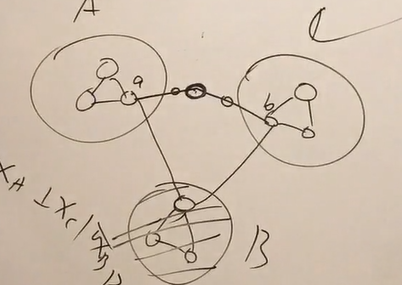 A
C
a
b
B
X_A ⊥ X_C |